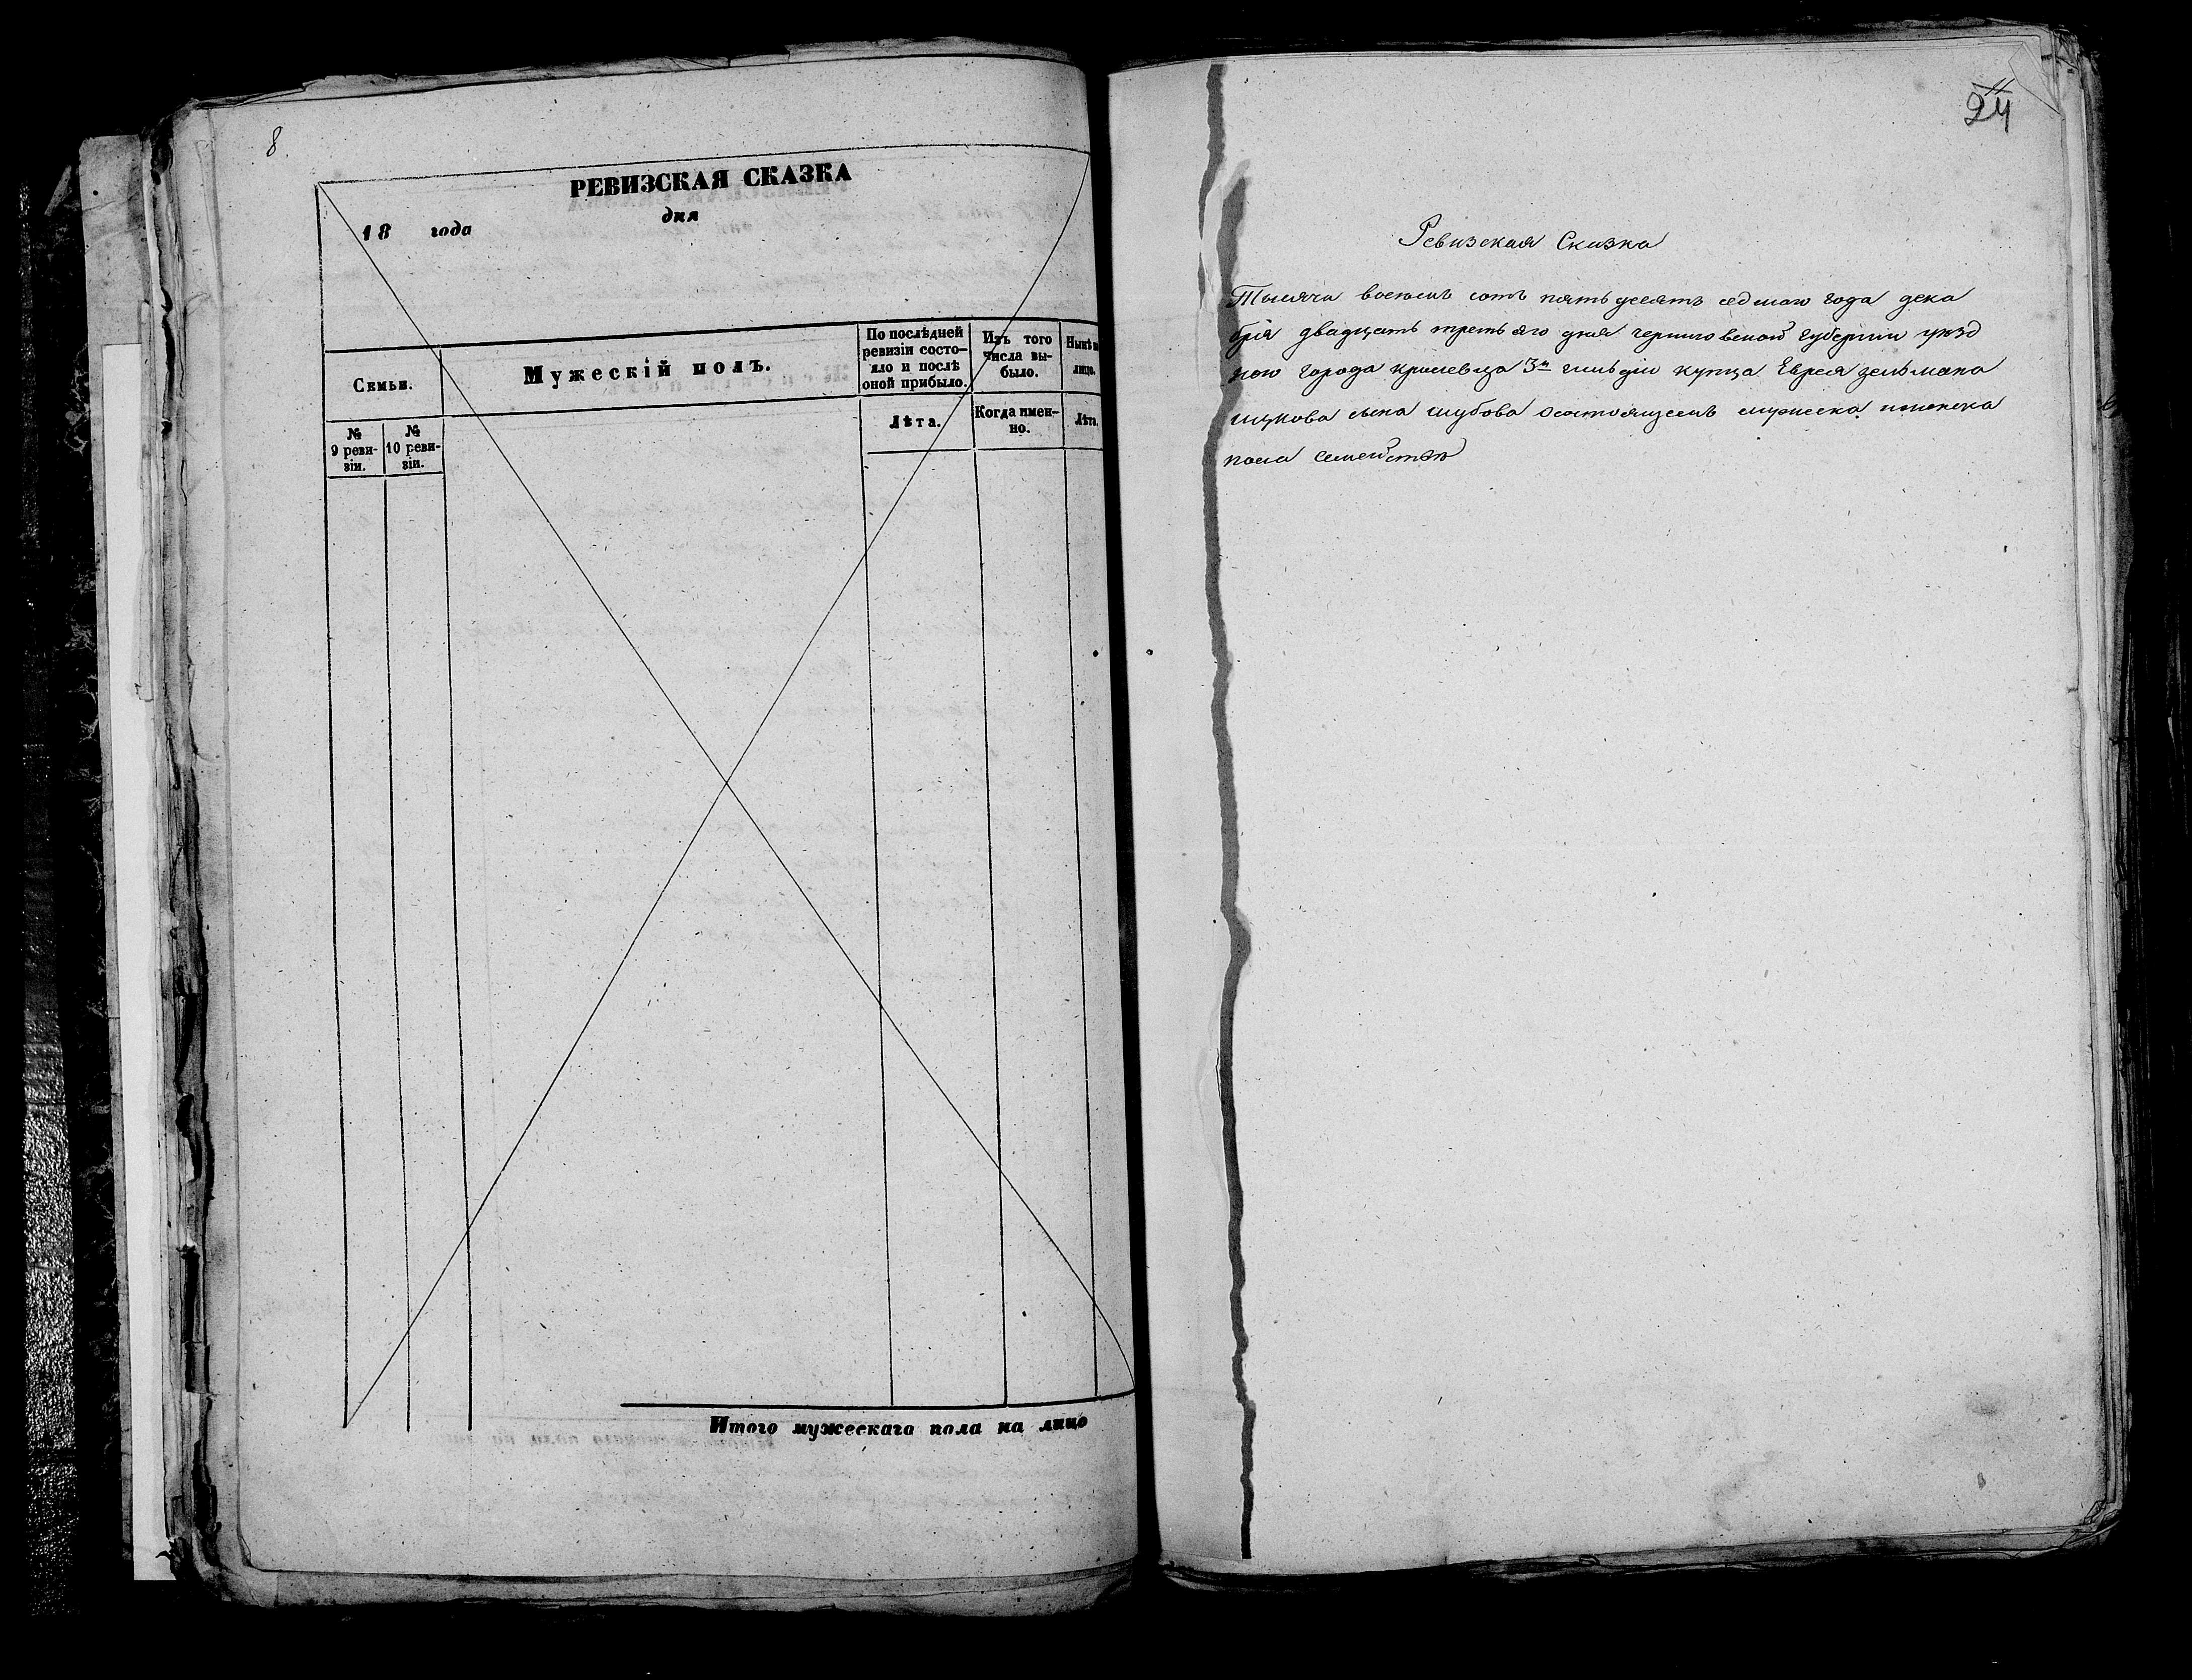 8.
РЕВИЗСКАЯ СКАЗКА
18 года дня
Семьи.
№ 9 реви-зіи.
№ 10 реви-зіи.
Мужескій полъ.
По послѣдней
ревизіи состо-
яло и послѣ
оной прибыло.
Лѣта.
Изъ того
числа вы-
было.
Когда имен-
но.
Нынѣ на
лицо.
Лѣта.
Итого мужескаго пола на лицо
24
Ревизская Сказка
Тысяча восемь сотъ пятьдесятъ седмаго года дека
брія двадцать третьяго дня черниговской губерніи уезд
ного города кролевца 3й гильдіи купца Еврея зельмана
сына шубова о состоящемъ мужеска и женска
пола семействѣ